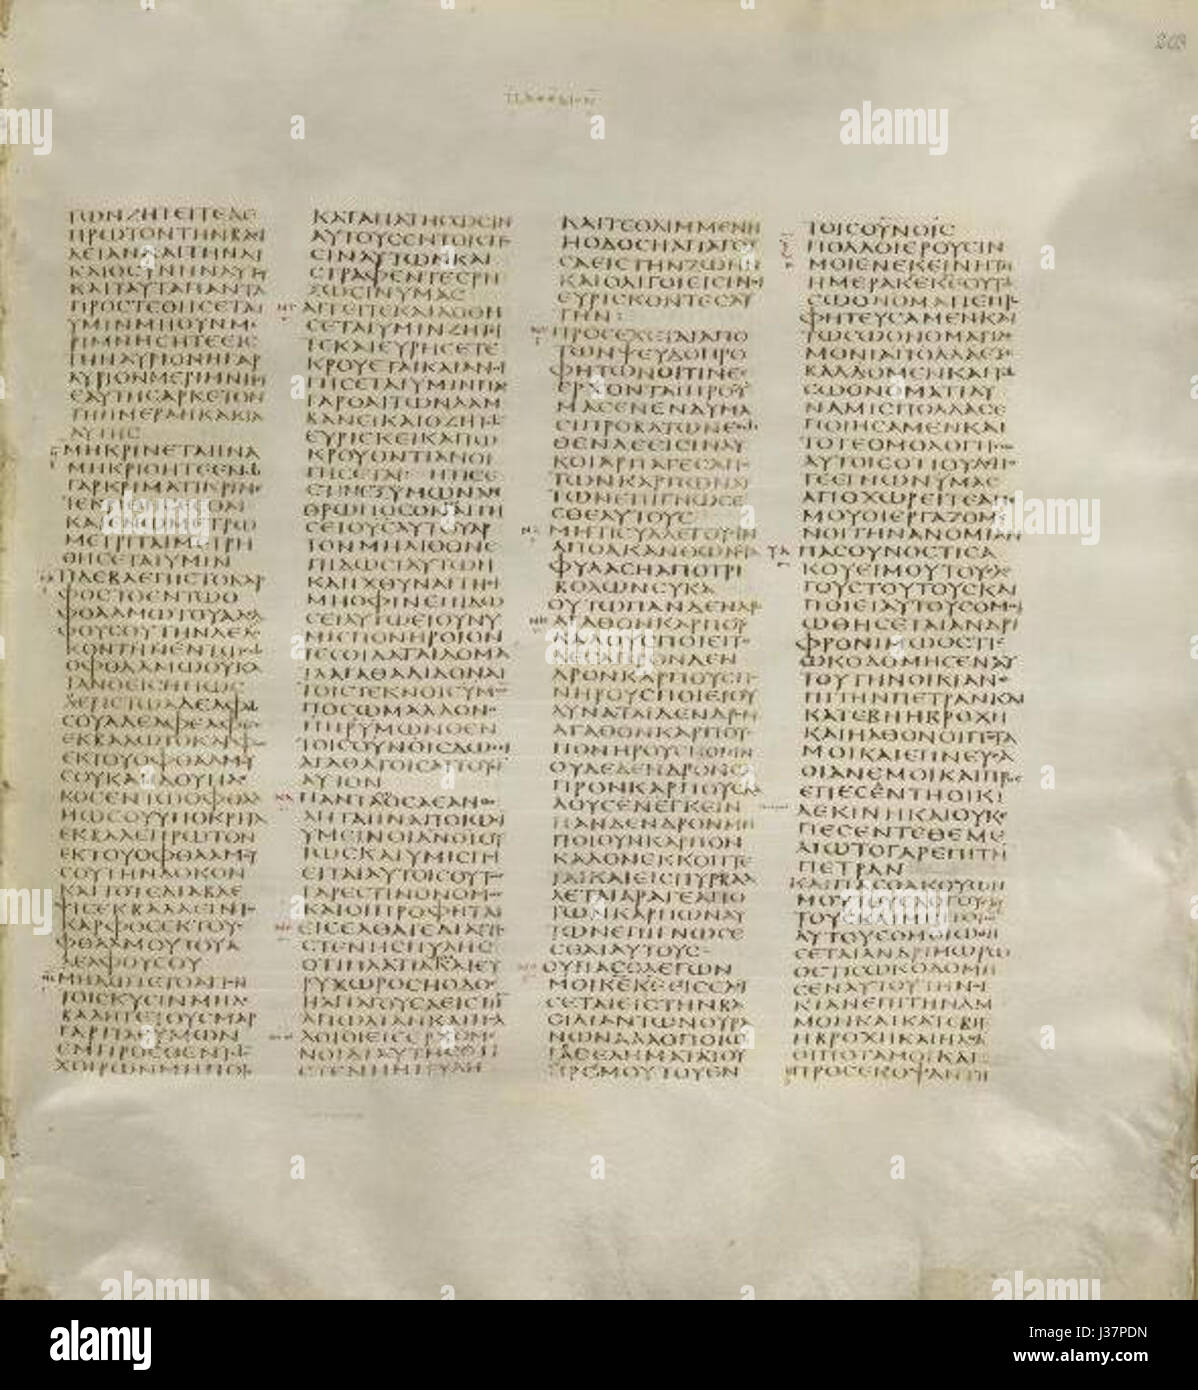 ΤΩΝΖΗΤΕΙΤΕΔΕ
ΠΡΩΤΟΝΤΗΝΒΑϹΙ
ΛΕΙΑΝΚΑΙΤΗΝΔΙ
ΚΑΙΟϹΥΝΗΝΑΥΤΟΥ
ΚΑΙΤΑΥΤΑΠΑΝΤΑ
ΠΡΟϹΤΕΘΗϹΕΤΑΙ
ΥΜΙΝΜΗΟΥΝΜΕ
ΡΙΜΝΗϹΗΤΕΕΙϹ
ΤΗΝΑΥΡΙΟΝΗΓΑΡ
ΑΥΡΙΟΝΜΕΡΙΜΝΗϹΙ
ΕΑΥΤΗϹΑΡΚΕΤΟΝ
ΤΗΗΜΕΡΑΗΚΑΚΙΑ
ΑΥΤΗϹ
ΜΗΚΡΙΝΕΤΑΙΙΝΑ
ΜΗΚΡΙΘΗΤΕΕΝΩ
ΓΑΡΚΡΙΜΑΤΙΚΡΙΝΕ
ΚΑΙΕΝΩΜΕΤΡΩ
ΜΕΤΡΙΤΑΙΜΕΤΡΗ
ΘΗϹΕΤΑΙΥΜΙΝ
ΤΙΔΕΒΛΕΠΙϹΤΟΚΑΡ
ΦΟϹΤΟΕΝΤΩΟ
ΦΘΑΛΜΩΤΟΥΑΔΕΛ
ΦΟΥϹΟΥΤΗΝΔΕΔΟ
ΚΟΝΤΗΝΕΝΤΩϹΩ
ΟΦΘΑΛΜΩΟΥΚΑ
ΤΑΝΟΕΙϹΗΠΩϹ
ΛΕΓΙϹΤΩΑΔΕΛΦΩ
ϹΟΥΑΔΕΛΦΕΑΦΕϹ
ΕΚΒΑΛΩΤΟΚΑΡΦΟϹ
ΕΚΤΟΥΟΦΘΑΛΜΟΥ
ϹΟΥΚΑΙΙΔΟΥΗΔΟ
ΚΟϹΕΝΤΩΟΦΘΑΛ
ΜΩϹΟΥΥΠΟΚΡΙΤΑ
ΕΚΒΑΛΕΠΡΩΤΟΝ
ΕΚΤΟΥΟΦΘΑΛΜΟΥ
ϹΟΥΤΗΝΔΟΚΟΝ
ΚΑΙΤΟΤΕΔΙΑΒΛΕ
ΨΙϹΕΚΒΑΛΛΕΙΝΤΟ
ΚΑΡΦΟϹΕΚΤΟΥΟ
ΦΘΑΛΜΟΥΤΟΥΑ
ΔΕΛΦΟΥϹΟΥ
ΜΗΔΩΤΕΤΟΑΓΙΟΝ
ΤΟΙϹΚΥϹΙΝΜΗΔΕ
ΒΑΛΗΤΕΤΟΥϹΜΑΡ
ΓΑΡΙΤΑϹΥΜΩΝ
ΕΜΠΡΟϹΘΕΝΤΩ
ΧΟΙΡΩΝΜΗΠΟΤΕ
ΚΑΤΑΠΑΤΗϹΩϹΙΝ
ΑΥΤΟΥϹΕΝΤΟΙϹΠΟ
ϹΙΝΑΥΤΩΝΚΑΙ
ϹΤΡΑΦΕΝΤΕϹΡΗ
ΞΩϹΙΝΥΜΑϹ
ΑΙΤΕΙΤΕΚΑΙΔΟΘΗ
ϹΕΤΑΙΥΜΙΝΖΗΤΙ
ΤΕΚΑΙΕΥΡΗϹΕΤΕ
ΚΡΟΥΕΤΑΙΚΑΙΑΝΥ
ΓΗϹΕΤΑΙΥΜΙΝΠΑϹ
ΓΑΡΟΑΙΤΩΝΛΑΜ
ΒΑΝΕΙΚΑΙΟΖΗΤΩ
ΕΥΡΙϹΚΕΙΚΑΙΤΩ
ΚΡΟΥΟΝΤΙΑΝΟΙ
ΓΗϹΕΤΑΙ ΗΤΙϹΕ
ΘΡΩΠΟϹΟΝΑΙΤΗ
ϹΕΙΟΥϹΑΥΤΟΥΑΡ
ΤΟΝΜΗΛΙΘΟΝΕ
ΠΙΔΩϹΙΑΥΤΩΗ
ΚΑΙΙΧΘΥΝΑΙΤΗϹΙ
ΜΗΟΦΙΝΕΠΙΔΩ
ϹΕΙΑΥΤΩΕΙΟΥΝΥ
ΜΙϹΠΟΝΗΡΟΙΟΝ
ΤΕϹΟΙΔΑΤΑΙΔΟΜΑ
ΤΑΑΓΑΘΑΔΙΔΟΝΑΙ
ΤΟΙϹΤΕΚΝΟΙϹΥΜΩ
ΠΟϹΩΜΑΛΛΟΝΟ
ΠΗΡΥΜΩΝΟΕΝ
ΤΟΙϹΟΥΝΟΙϹΔΩϹΙ
ΑΓΑΘΑΤΟΙϹΑΙΤΟΥϹΙ
ΑΥΤΟΝ
ΠΑΝΤΑΟϹΑΕΑΝΘΕ
ΛΗΤΑΙΙΝΑΠΟΙΩϹΙ
ΥΜΕΙΝΟΙΑΝΟΙΟΥ
ΤΩϹΚΑΙΥΜΙϹΠΟΙ
ΕΙΤΑΙΑΥΤΟΙϹΟΥΤΟϹ
ΓΑΡΕϹΤΙΝΟΝΟΜΟϹ
ΚΑΙΟΙΠΡΟΦΗΤΑΙ
ΕΙϹΕΛΘΑΤΕΔΙΑΤΗϹ
ϹΤΕΝΗϹΠΥΛΗϹ
ΟΤΙΠΛΑΤΙΑΚΑΙΕΥ
ΡΥΧΩΡΟϹΗΟΔΟϹ
ΗΑΠΑΓΟΥϹΑΕΙϹΤΗ
ΑΠΩΛΙΑΝΚΑΙΠΟΛ
ΛΟΙΟΙΕΙϹΕΡΧΟΜΕ
ΝΟΙΔΙΑΥΤΗϹΟΤΙ
ϹΤΕΝΗΗΠΥΛΗ
ΚΑΙΤΕΘΛΙΜΜΕΝΗ
ΗΟΔΟϹΗΑΠΑΓΟΥ
ϹΑΕΙϹΤΗΝΖΩΗΝ
ΚΑΙΟΛΙΓΟΙΕΙϹΙΝΟΙ
ΕΥΡΙϹΚΟΝΤΕϹΑΥ
ΤΗΝ
ΠΡΟϹΕΧΕΤΑΙΑΠΟ
ΤΩΝΨΕΥΔΟΠΡΟ
ΦΗΤΩΝΟΙΤΙΝΕϹ
ΕΡΧΟΝΤΑΙΠΡΟϹΥ
ΜΑϹΕΝΕΝΔΥΜΑ
ϹΙΠΡΟΒΑΤΩΝΕϹΩ
ΘΕΝΔΕΕΙϹΙΝΛΥ
ΚΟΙΑΡΠΑΓΕϹΑΠΟ
ΤΩΝΚΑΡΠΩΝΑΥ
ΤΩΝΕΠΙΓΝΩϹΕ
ϹΘΕΑΥΤΟΥϹ
ΜΗΤΙϹΥΛΛΕΓΟΥϹΙΝ
ΑΠΟΑΚΑΝΘΩΝϹΤΑ
ΦΥΛΑϹΗΑΠΟΤΡΙ
ΒΟΛΩΝϹΥΚΑ
ΟΥΤΩΠΑΝΔΕΝΔΡΟ
ΑΓΑΘΟΝΚΑΡΠΟΥϹ
ΚΑΛΟΥϹΠΟΙΕΙΤΟ
ΔΕϹΑΠΡΟΝΔΕΝ
ΔΡΟΝΚΑΡΠΟΥϹΠΟ
ΝΗΡΟΥϹΠΟΙΕΙΟΥ
ΔΥΝΑΤΑΙΔΕΝΔΡΟΝ
ΑΓΑΘΟΝΚΑΡΠΟΥϹ
ΠΟΝΗΡΟΥϹΠΟΙΕΙΝ
ΟΥΔΕΔΕΝΔΡΟΝϹΑ
ΠΡΟΝΚΑΡΠΟΥϹΚΑ
ΛΟΥϹΕΝΕΓΚΕΙΝ
ΠΑΝΔΕΝΔΡΟΝΜΗ
ΠΟΙΟΥΝΚΑΡΠΟΝ
ΚΑΛΟΝΕΚΚΟΠΤΕ
ΤΑΙΚΑΙΕΙϹΠΥΡΒΑΛ
ΛΕΤΑΙΑΡΑΓΕΑΠΟ
ΤΩΝΚΑΡΠΩΝΑΥ
ΤΩΝΕΠΙΓΝΩϹΕ
ϹΘΑΙΑΥΤΟΥϹ
ΟΥΠΑϹΟΛΕΓΩΝ
ΜΟΙΚΕΚΕΕΙϹΕΛΕΥ
ϹΕΤΑΙΕΙϹΤΗΝΒΑ
ϹΙΛΙΑΝΤΩΝΟΥΡΑ
ΝΩΝΑΛΛΟΠΟΙΩ
ΤΑΘΕΛΗΜΑΤΑΤΟΥ
ΠΡΟϹΜΟΥΤΟΥΕΝ
ΤΟΙϹΟΥΝΟΙϹ
ΠΟΛΛΟΙΕΡΟΥϹΙΝ
ΜΟΙΕΝΕΚΕΙΝΗΤΗ
ΗΜΕΡΑΚΕΚΕΟΥΤΩ
ϹΩΟΝΟΜΑΤΙΕΠΡΟ
ΦΗΤΕΥϹΑΜΕΝΚΑΙ
ΤΩϹΩΟΝΟΜΑΤΙΔΑΙ
ΜΟΝΙΑΠΟΛΛΑΕΞΕ
ΒΑΛΛΟΜΕΝΚΑΙΤΩ
ϹΩΟΝΟΜΑΤΙΔΥ
ΝΑΜΙϹΠΟΛΛΑϹΕ
ΠΟΙΗϹΑΜΕΝΚΑΙ
ΤΟΤΕΟΜΟΛΟΓΗϹΩ
ΑΥΤΟΙϹΟΤΙΟΥΔΕΠΟ
ΤΕΕΓΝΩΝΥΜΑϹ
ΑΠΟΧΩΡΕΙΤΕΑΠ
ΜΟΥΟΙΕΡΓΑΖΟΜΕ
ΝΟΙΤΗΝΑΝΟΜΙΑΝ
ΠΑϹΟΥΝΟϹΤΙϹΑ
ΚΟΥΕΙΜΟΥΤΟΥϹΛΟ
ΓΟΥϹΤΟΥΤΟΥϹΚΑΙ
ΠΟΙΕΙΑΥΤΟΥϹΟΜΟΙ
ΩΘΗϹΕΤΑΙΑΝΔΡΙ
ΦΡΟΝΙΜΩΟϹΤΙϹ
ΩΚΟΔΟΜΗϹΕΝΑΥ
ΤΟΥΤΗΝΟΙΚΙΑΝΕ
ΠΙΤΗΝΠΕΤΡΑΝΚΑΙ
ΚΑΤΕΒΗΗΒΡΟΧΗ
ΚΑΙΗΛΘΟΝΟΙΠΟΤΑ
ΜΟΙΚΑΙΕΠΝΕΥϹΑ
ΟΙΑΝΕΜΟΙΚΑΙΠΡΟϹ
ΕΠΕϹΕΝΤΗΟΙΚΙ
ΑΕΚΙΝΗΚΑΙΟΥΚΕ
ΠΕϹΕΝΤΕΘΕΜΕ
ΛΙΩΤΟΓΑΡΕΠΙΤΗ
ΠΕΤΡΑΝ
ΚΑΙΠΑϹΟΑΚΟΥΩΝ
ΑΥΤΟΥϹΟΜΟΙΩΘΗ
ϹΕΤΑΙΑΝΔΡΙΜΩΡΩ
ΟϹΤΙϹΩΚΟΔΟΜΗ
ϹΕΝΑΥΤΟΥΤΗΝΟΙ
ΚΙΑΝΕΠΙΤΗΝΑΜ
ΜΟΝΚΑΙΚΑΤΕΒΗ
ΗΒΡΟΧΗΚΑΙΗΛΘΟ
ΟΙΠΟΤΑΜΟΙΚΑΙ
ΠΡΟϹΕΚΟΨΑΝΤΗ
alamy
Image ID: J37PDN
www.alamy.com